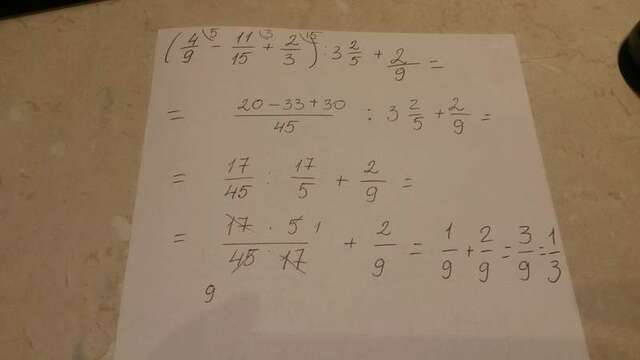 (4/9 \5 − 11/15 \3 + 2/3 \15) : 3 2/5 + 2/9 =
= (20 − 33 + 30)/45 : 3 2/5 + 2/9 =
= 17/45 : 17/5 + 2/9 =
= (17 · 5 1)/(45 · 17) + 2/9 = 1/9 + 2/9 = 3/9 = 1/3
9